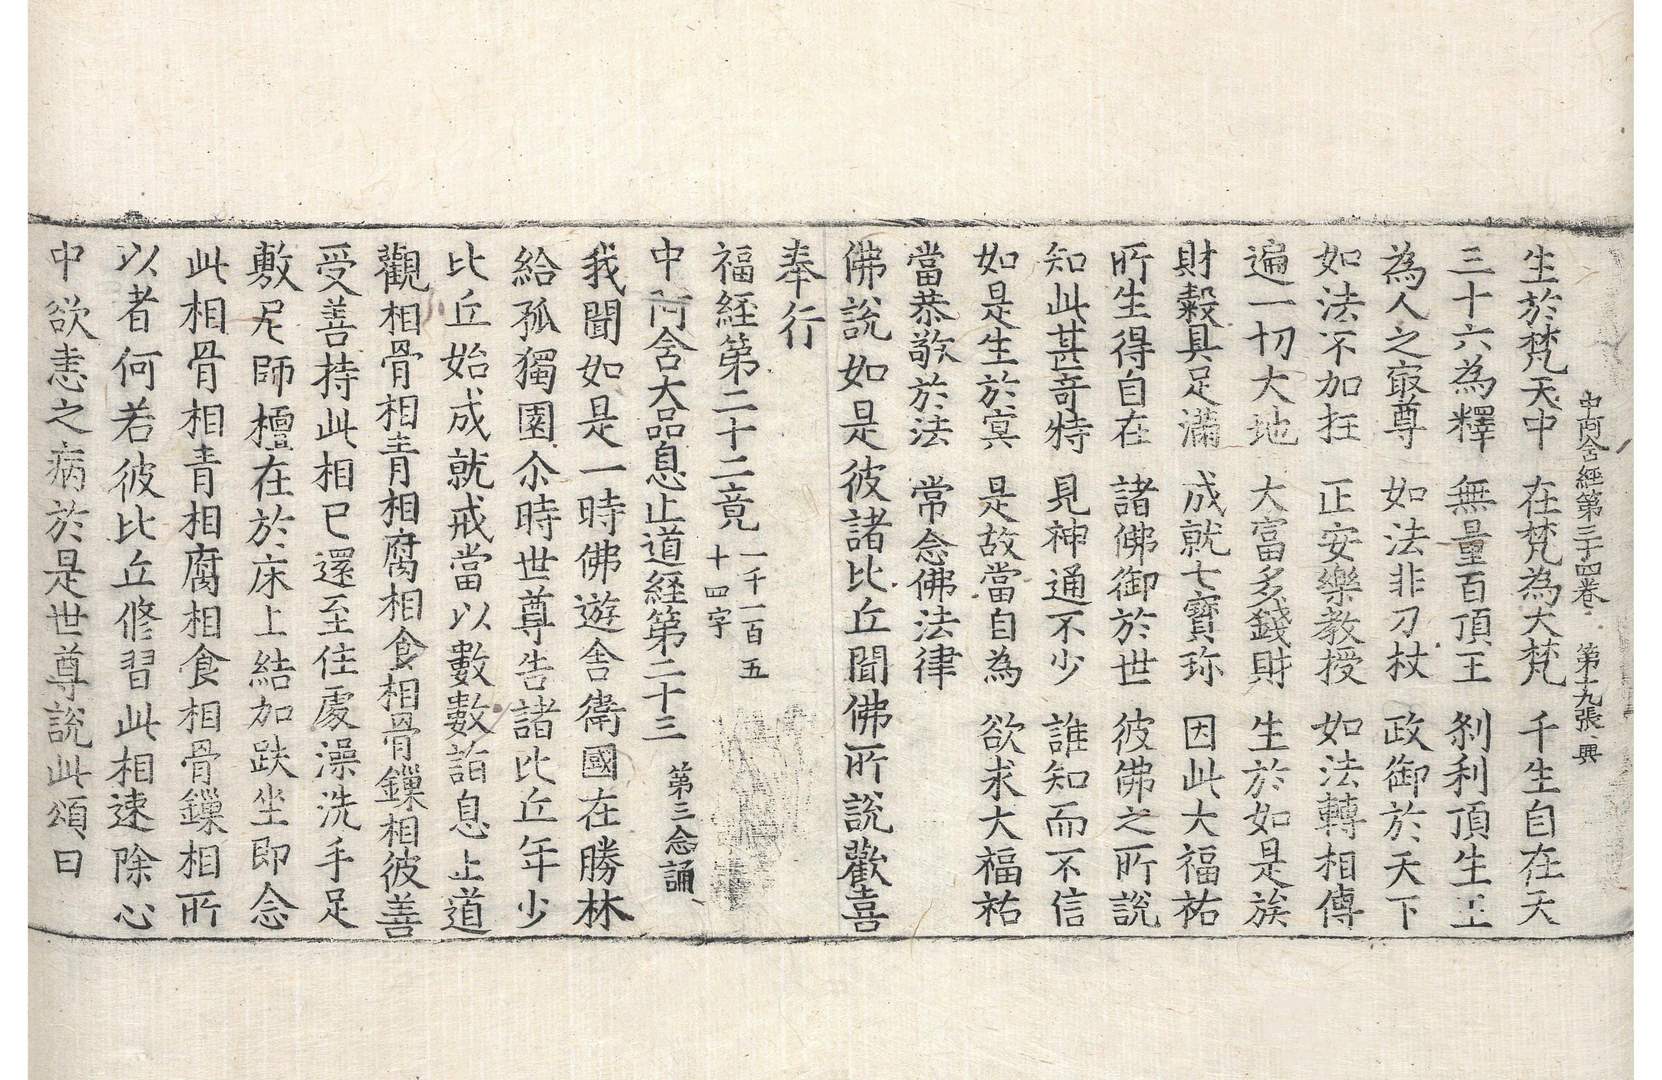 中阿含經第三十四卷 第十九張 興
生於梵天中 在梵為大梵 千生自在天
三十六為釋 無量百頂王 剎利頂生王
為人之㝡尊 如法非刀杖 政御於天下
如法不加抂 正安樂教授 如法轉相傳
遍一切大地 大富多錢財 生於如是族
財穀具足滿 成就七寶珎 因此大福祐
所生得自在 諸佛御於世 彼佛之所說
知此甚奇特 見神通不少 誰知而不信
如是生於㝠 是故當自為 欲求大福祐
當恭敬於法 常念佛法律
佛說如是彼諸比丘聞佛所說歡喜
奉行
福經第二十二竟 一千一百五
十四字
中阿含大品息止道經第二十三 第三念誦
我聞如是一時佛遊舍衛國在勝林
給孤獨園尒時世尊告諸比丘年少
比丘始成就戒當以數數詣息止道
觀相骨相青相腐相食相骨鏁相彼善
受善持此相已還至住處澡洗手足
敷尼師檀在於床上結加趺坐即念
此相骨相青相腐相食相骨鏁相所
以者何若彼比丘修習此相速除心
中欲恚之病於是世尊說此頌曰